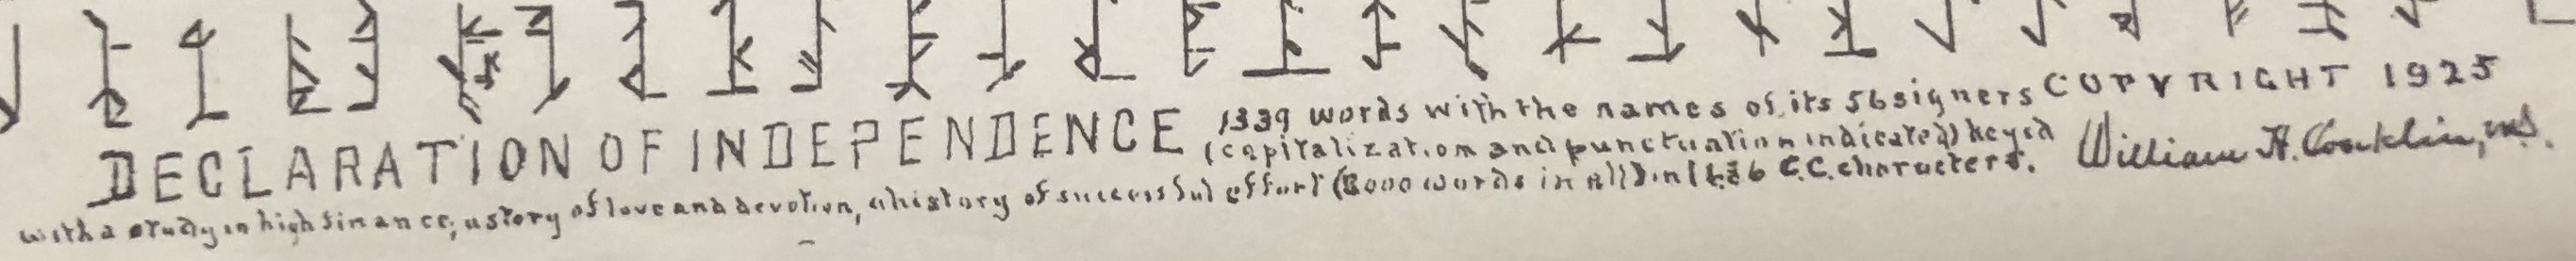 DECLARATION OF INDEPENDENCE 1339 words with the names of its 56 signers COPYRIGHT 1925
(capitalization and punctuation indicated) keyed
in C.C. characters. William H. Conklin, M.D.
with a study in high finance, a story of love and devotion, a history of successful effort (3000 words in all)